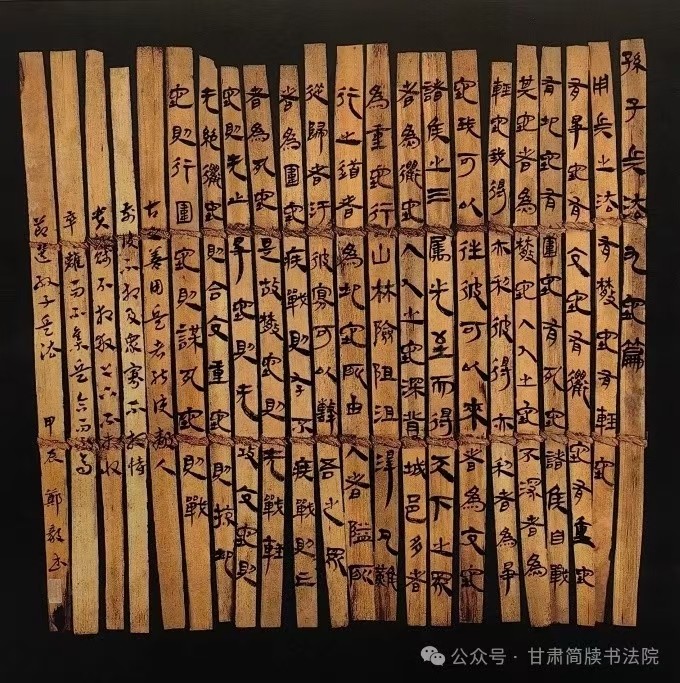 孫子兵法九地篇
用兵之法有散地有輕地
有爭地有交地有衢地有重地
有圮地有圍地有死地諸侯自戰
其地者為散地入人之地不深者為
輕地我得亦利彼得亦利者為爭
地我可以往彼可以來者為交地
諸侯之三屬先至而得天下之眾
者為衢地入人之地深背城邑多者
為重地行山林險阻沮澤凡難
行之道者為圮地所由入者隘所
從歸者汙彼寡可以擊吾之眾
者為圍地疾戰則存不疾戰則亡
者為死地是故散地則无戰輕
地則无止爭地則无攻交地則
无絕衢地則合交重地則掠圮
地則行圍地則謀死地則戰
古之善用兵者能使敵人
前後不相及眾寡不相恃
貴賤不相救上下不相收
卒離而不集兵合而不齊
節選孫子兵法 甲辰 鄭毅書
公众号 · 甘肃简牍书法院